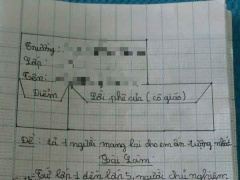 Trường :
Lớp :
Tên :
Điểm Lời phê của ( cô giáo )
Đề : tả 1 người mang lại cho em ấn tượng nhất
Bài Làm
Từ lớp 1 đến lớp 5, người chủ nghiệm